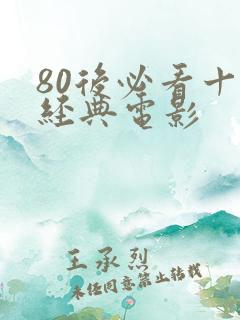 80後必看十
經典電影
王承烈
未經同意禁止轉載